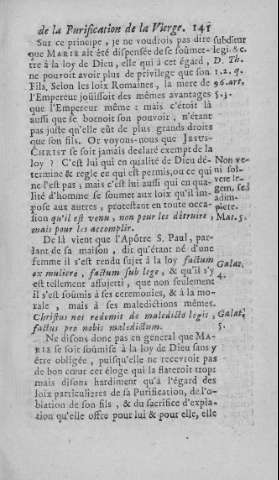 de la Purification de la Vierge. 141
Sur ce principe, je ne voudrois pas dire
que MARIE ait été dispensée de se soumet-
tre à la loy de Dieu, elle qui à cet égard,
ne pouvoit avoir plus de privilege que son
Fils. Selon les loix Romaines, la mere de
l'Empereur joüissoit des mêmes avantages
que l'Empereur même : mais c'étoit là
aussi que se bornoit son pouvoir, n'étant
pas juste qu'elle eût de plus grands droits
que son fils. Or voyons-nous que JESUS-
CHRIST se soit jamais declaré exempt de la
loy ? C'est lui qui en qualité de Dieu dé-
termine & regle ce qui est permis, ou ce qui
ne l'est pas ; mais c'est lui aussi qui en qua-
lité d'homme se soumet aux loix qu'il im-
pose aux autres ; protestant en toute occa-
sion qu'il est venu, non pour les détruire,
mais pour les accomplir.
De là vient que l'Apôtre S. Paul, par-
lant de sa maison, dit qu'étant né d'une
femme il s'est rendu sujet à la loy factum
ex muliere, factum sub lege, & qu'il s'y
est tellement assujetti, que non seulement
il s'est soumis à ses ceremonies, & à la mo-
rale, mais à ses maledictions mêmes.
Christus nos redemit de maledicto legis,
factus pro nobis maledictum.
Ne disons donc pas en general que MA-
RIE se soit soûmise à la loy de Dieu sans y
être obligée, puisqu'elle ne recevroit pas
de bon cœur cet éloge qui la flateroit trop ;
mais disons hardiment qu'à l'égard des
loix particulieres de sa Purification, de l'o-
blation de son fils, & du sacrifice d'expia-
tion qu'elle offre pour lui & pour elle, elle
subditur
legi. &c.
D. Th.
1.2. q.
96. art.
5.3.
Non ve-
ni sol-
vere le-
gem, sed
adim-
plere.
Mat. 5.
Galat.
4.
Galat.
5.